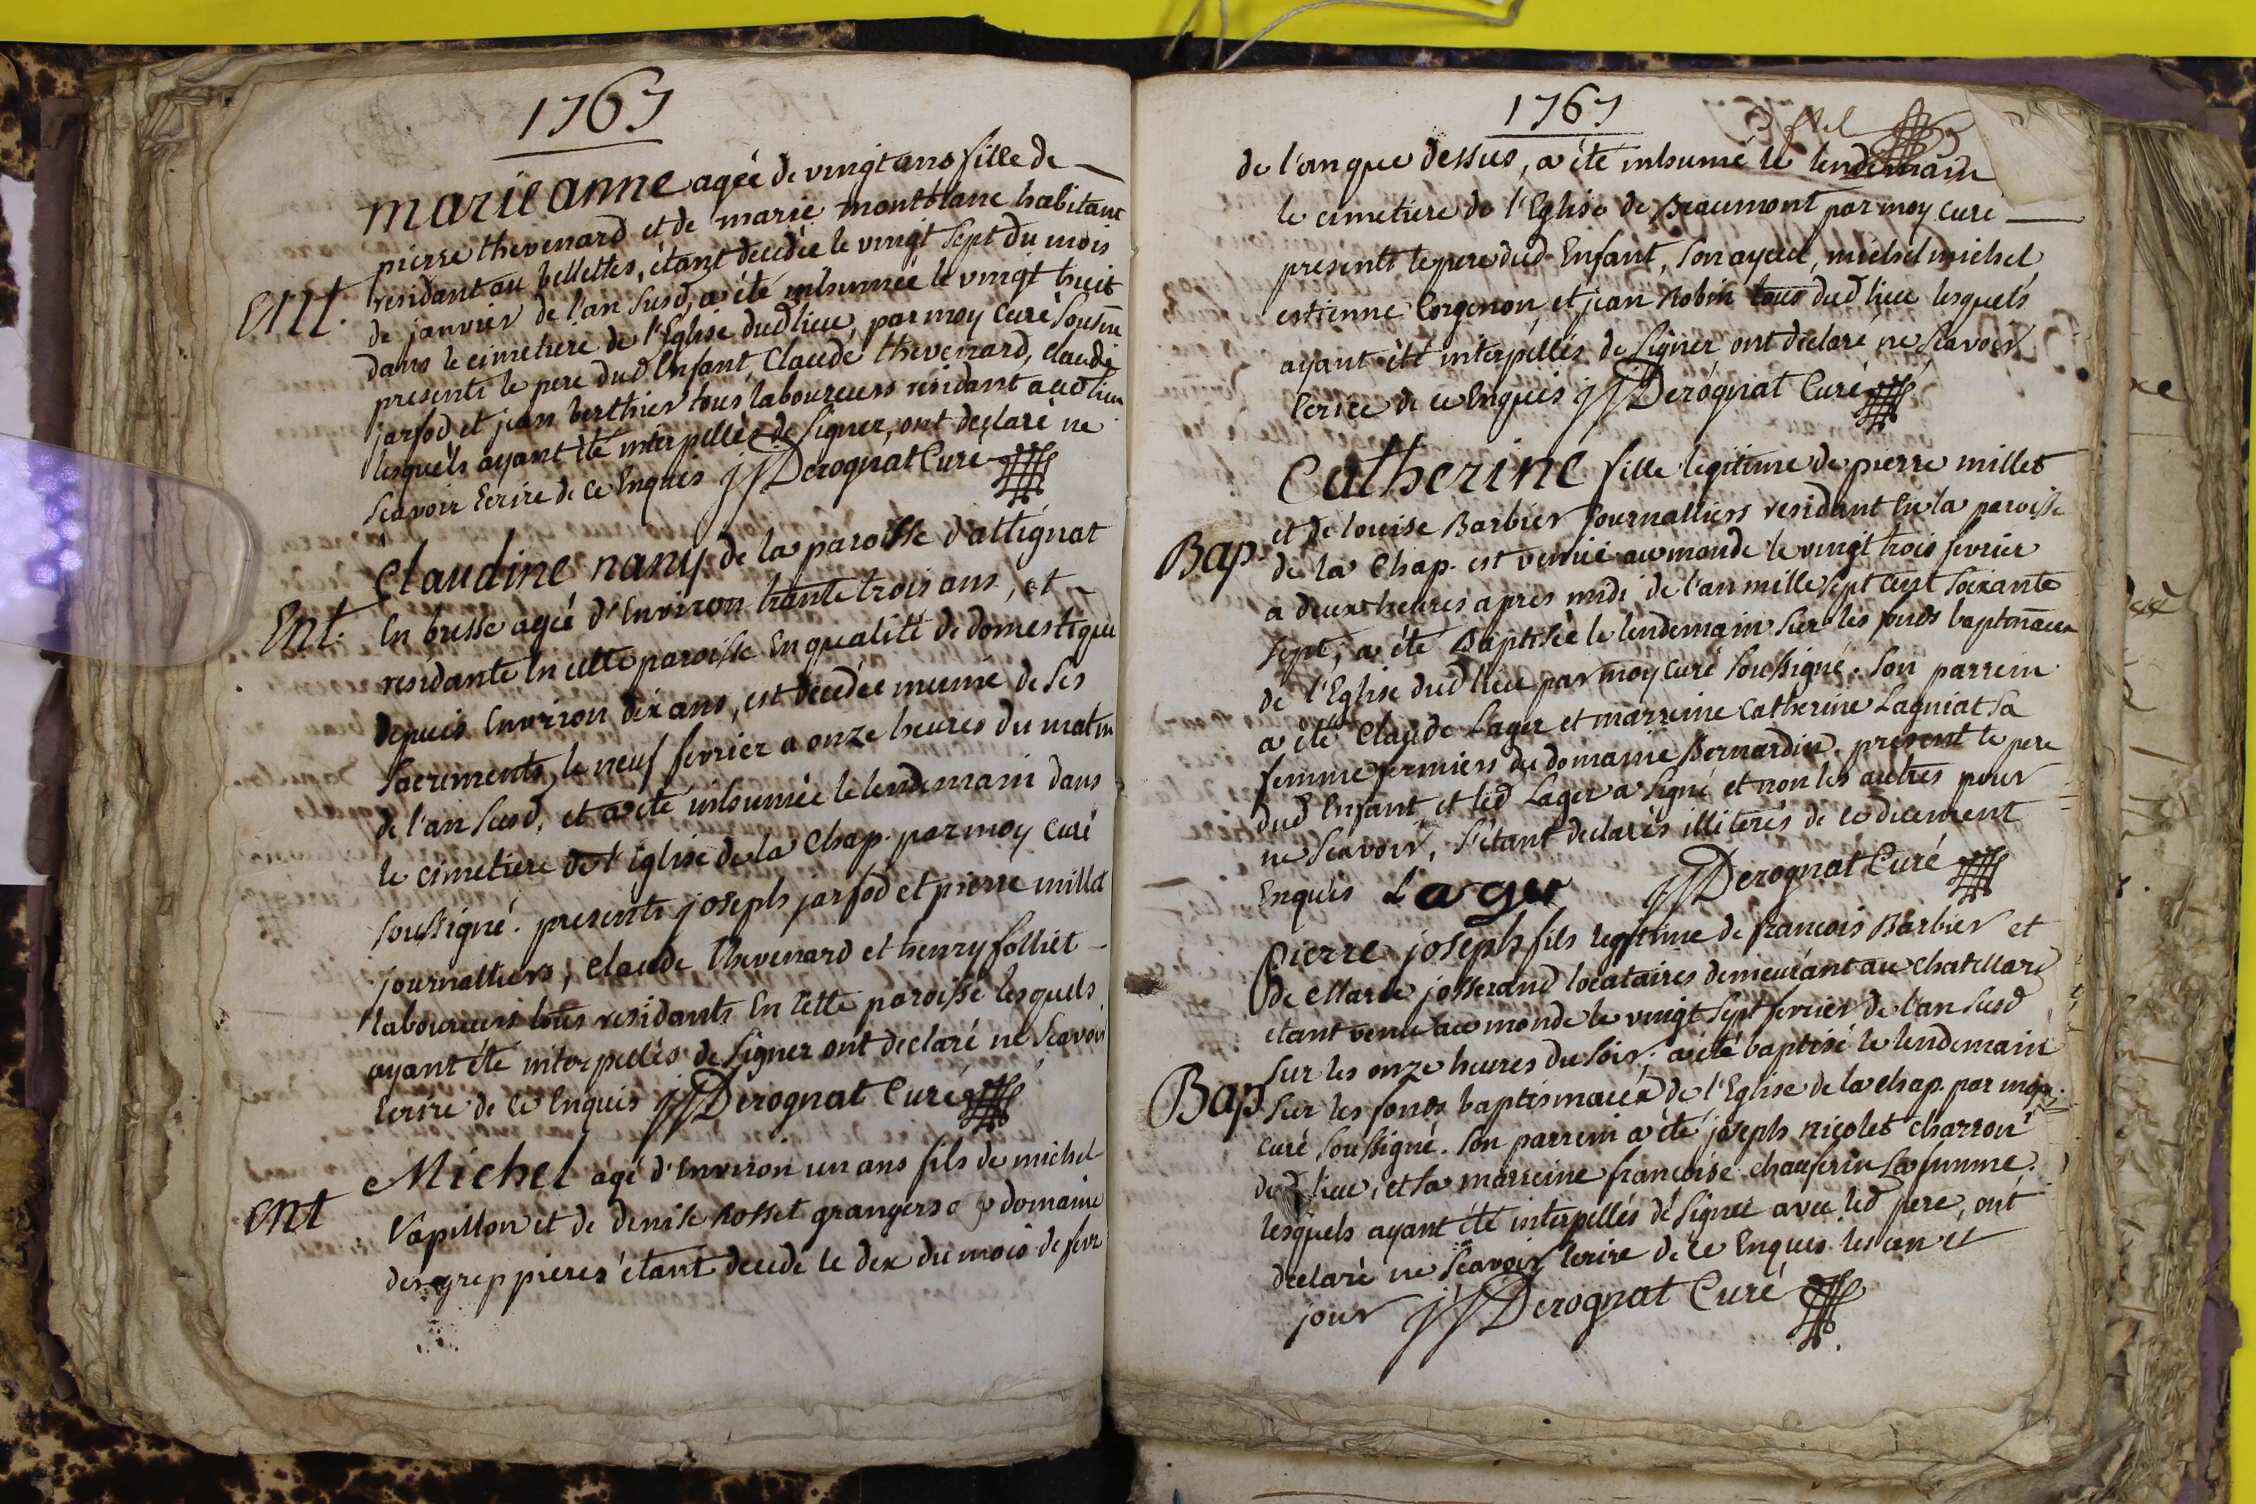 1767
marie anne agée de vingt ans fille de
pierre thevenard et de marie montblanc habitant
residant au bellettes, étant decedée le vingt sept du mois
Ent. de janvier de l'an susd, a été inhumée le vingt huit
dans le cimetiere de l'Eglise dud lieu, par moy curé soussné
presents le pere dud Enfant, Claude thevenard, claude
jarfod et jean berthier tous laboureurs residant aud lieu
lesquels ayant été interpellés de signer, ont declaré ne
scavoir Ecrire de ce Enquis jj Derognat Curé
Claudine nany de la paroisse d'attignat
Ent. En bresse agée d'Environ trante trois ans, et
residante En cette paroisse En qualité de domestique
depuis Environ dix ans, est decedée munie de ses
sacrements, le neuf fevrier a onze heures du matin
de l'an susd, et a été inhumée le lendemain dans
le cimetiere de l'Eglise de la Chap. par moy curé
soussigné. presents joseph jarfod et pierre millet
journalliers, claude thevenard et henry folliet
laboureurs tous residants En cette paroisse lesquels
ayant été interpellés de signer ont declaré ne scavoir
Ecrire de ce Enquis jj Derognat Curé
Michel agé d'Environ un ans fils de michel
Ent Vapillon et de denise Rosset grangers domaine
des greppieres étant decedé le dix du mois de fevr
1767
de l'an que dessus, a été inhumé le lendemain
le cimetiere de l'Eglise de Beaumont par moy curé
presents le pere dud Enfant, son ayeul, michel michel
estienne Corgenon et jean Robin tous dud lieu lesquels
ayant été interpellés de signer ont declaré ne scavoir
Ecrire de ce Enquis jj Derognat Curé
Catherine fille legitime de pierre millet
et de louise Barbier journalliers residant En la paroisse
Bap. de la Chap. est venue au monde le vingt trois fevrier
a deux heures apres midi de l'an mille sept cent soixante
sept, a été Baptisée le lendemain sur les fonds baptmaux
de l'Eglise dud lieu par moy curé soussigné. Son parrein
a été Claude Lager et marreine Catherine Lagniat sa
femme fermiers du domaine Bernardin. present le pere
dud Enfant et led Lager a signé et non les autres pour
ne scavoir, s'étant declarés illiterés de ce duement
Enquis Lager jj Derognat Curé
Pierre joseph fils legitime de francois Barbier et
de Marie josserand locataires demeurant au chatellard
etant venu au monde le vingt sept fevrier de l'an susd
sur les onze heures du soir; a été baptisé le lendemain
Bap. sur les fonds baptismaux de l'Eglise de la chap. par moy
curé soussigné. Son parrein a été joseph nicolet charron
dud lieu, et sa marreine francoise chauferin sa femme.
lesquels ayant été interpellés de signer avec led pere, ont
declaré ne scavoir Ecrire de ce Enquis les an et
jour jj Derognat Curé